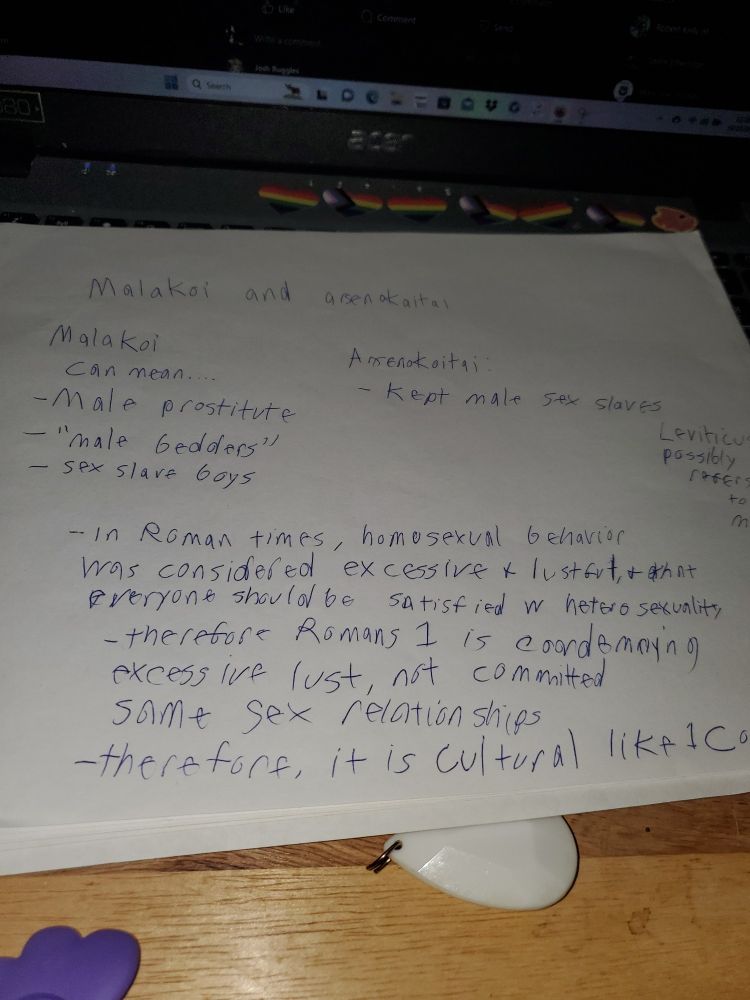 Like
Comment
Send
Write a comment
Josh Ruggles
Search
acer
Malakoi and arsenokaitai
Malakoi
can mean....
- Male prostitute
- "male bedders"
- sex slave boys
Arsenokoitai:
- Kept male sex slaves
Leviticus
possibly
refers
to
m
- In Roman times, homosexual behavior
was considered excessive & lustful, &
everyone should be satisfied w heterosexuality
- therefore Romans 1 is condemning
excessive lust, not committed
same sex relationships
- therefore, it is cultural like 1 Co